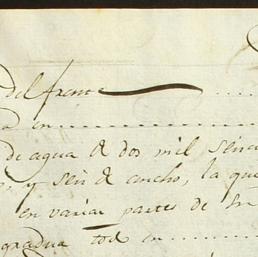 del frente
en
de agua de dos mil seis
y seis de ancho, la que
en varias partes de su
gradua todo en